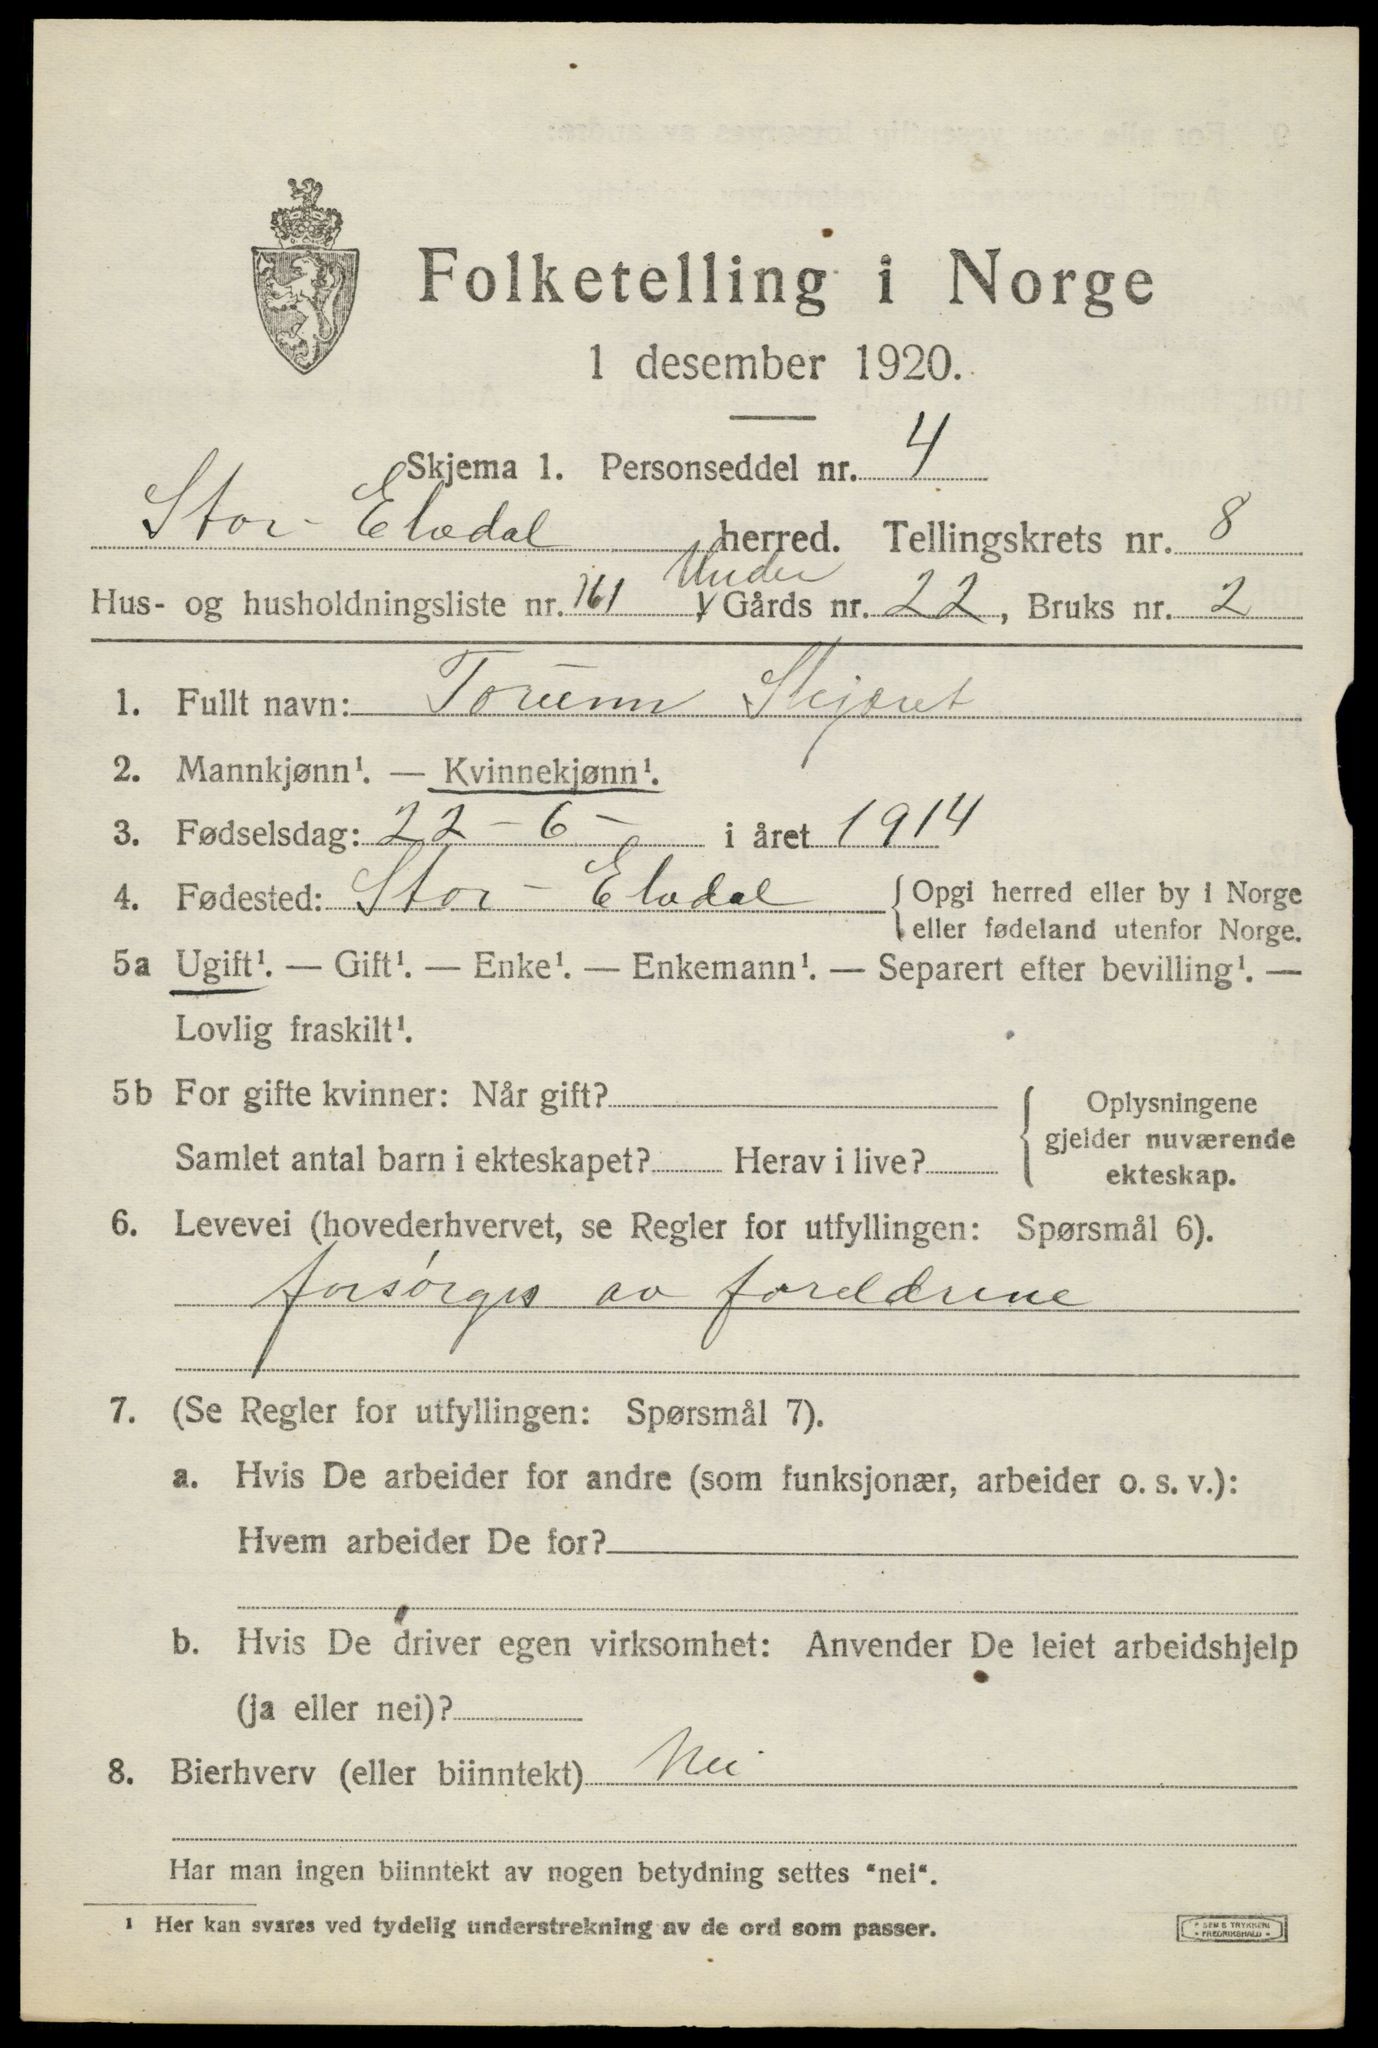 Folketelling i Norge
1 desember 1920.
Skjema 1. Personseddel nr. 4
Stor-Elvdal herred. Tellingskrets nr. 8
Under
Hus- og husholdningsliste nr. 161 Gårds nr. 22, Bruks nr. 2
1. Fullt navn: Torunn Skjæret
2. Mannkjønn¹. — Kvinnekjønn¹.
3. Fødselsdag: 22-6- i året 1914
4. Fødested: Stor-Elvdal { Opgi herred eller by i Norge
eller fødeland utenfor Norge.
5a Ugift¹. — Gift¹. — Enke¹. — Enkemann¹. — Separert efter bevilling¹. —
Lovlig fraskilt¹.
5b For gifte kvinner: Når gift?
Samlet antal barn i ekteskapet? Herav i live?
Oplysningene
gjelder nuværende
ekteskap.
6. Levevei (hovederhvervet, se Regler for utfyllingen: Spørsmål 6).
forsørges av foreldrene
7. (Se Regler for utfyllingen: Spørsmål 7).
a. Hvis De arbeider for andre (som funksjonær, arbeider o. s. v.):
Hvem arbeider De for?
b. Hvis De driver egen virksomhet: Anvender De leiet arbeidshjelp
(ja eller nei)?
8. Bierhverv (eller biinntekt) Nei
Har man ingen biinntekt av nogen betydning settes "nei".
1 Her kan svares ved tydelig understrekning av de ord som passer.
* SEM & TRYKKERI
* FREDRIKSHALD *